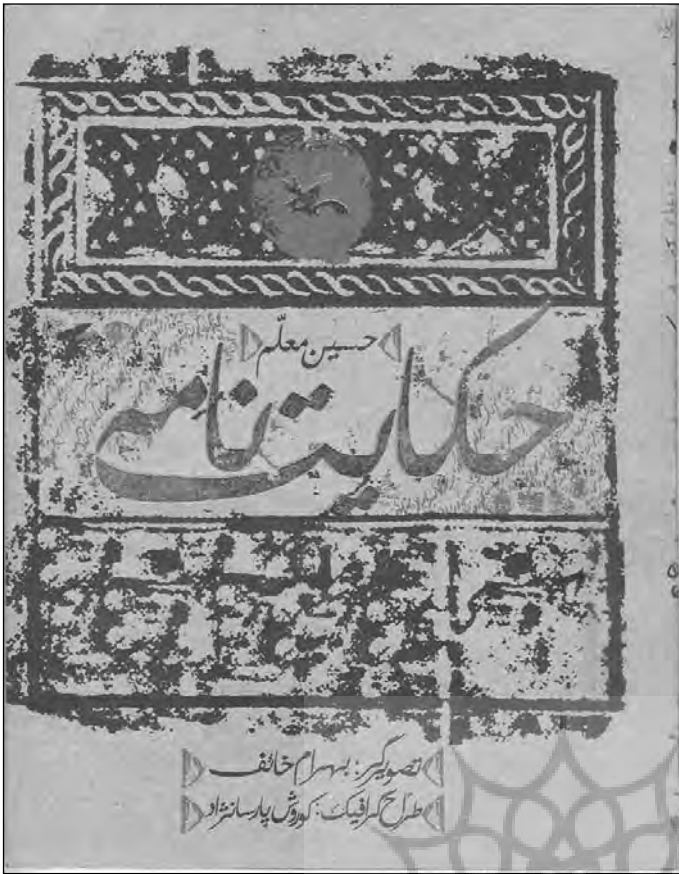 حسین معلّم
حکایت نامه
تصویرگر: بهرام خائف
طراح گرافیک: کوروش پارسانژاد